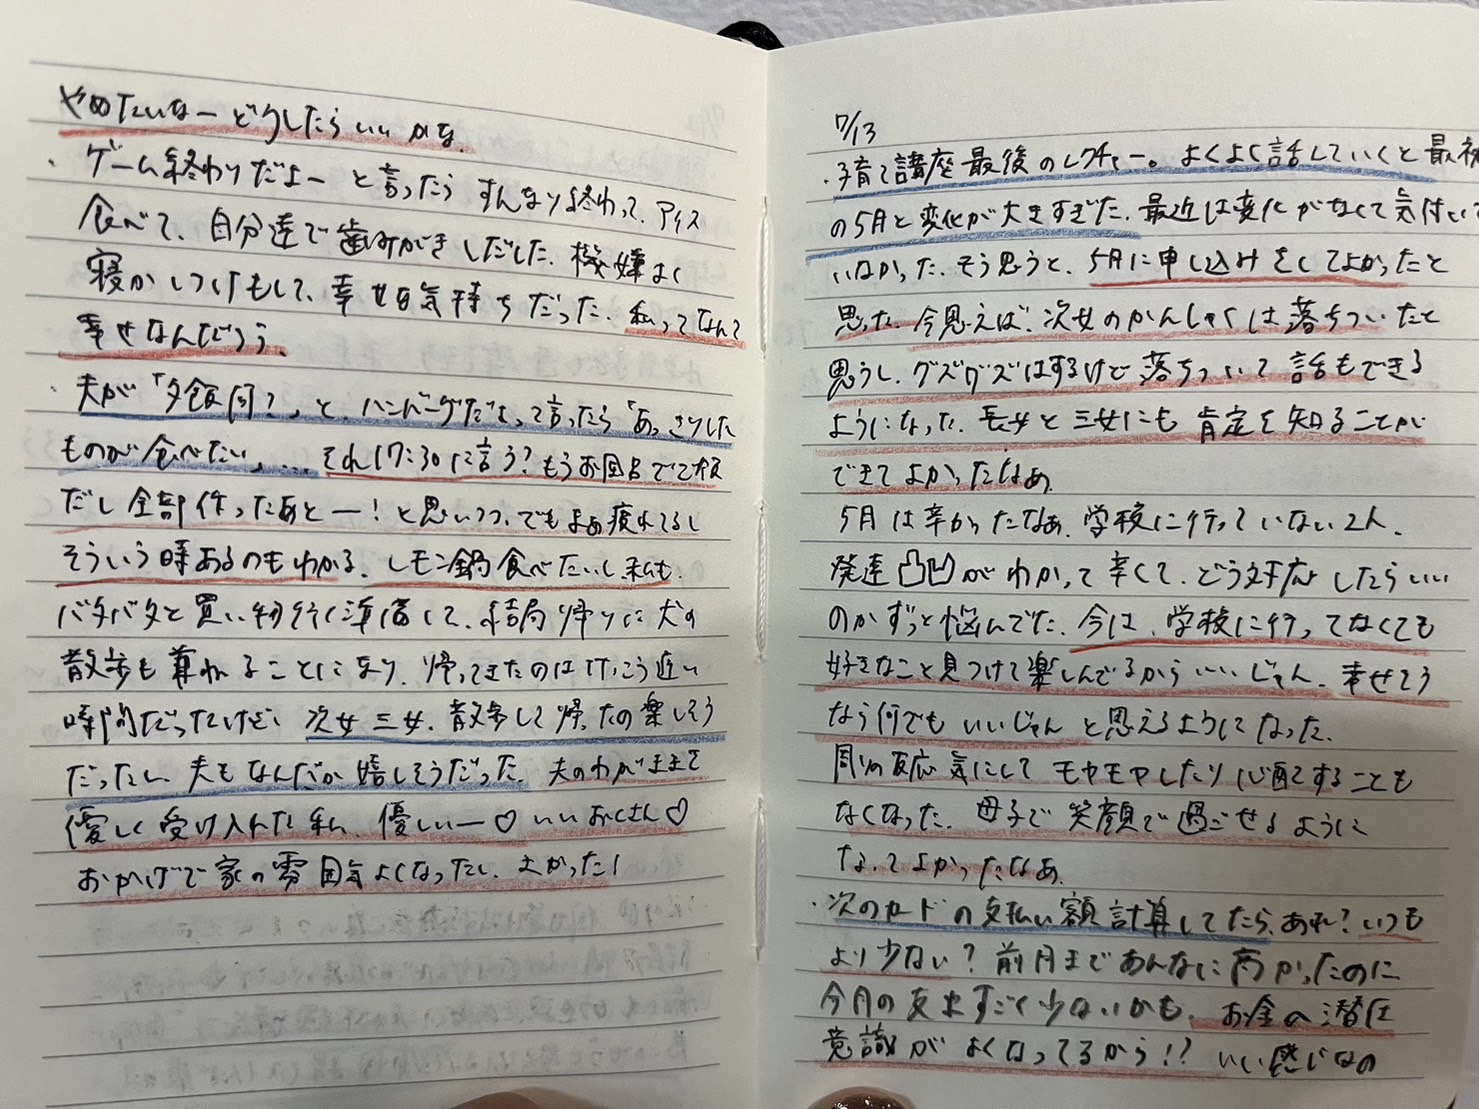 やめたいなーどうしたらいいかな。
・ゲーム終わりだよーと言ったらすんなり終わって、アイス
食べて、自分達で歯みがきしだした、機嫌よく
寝かしつけもして、幸せな気持ちだった、私ってなんて
幸せなんだろう、
・夫が「夕飯何?」と、ハンバーグだよって言ったら「あっさりした
ものが食べたい」…。それ17:30に言う?もうお風呂
だし全部作ったあとー!と思いつつ、でもまあ疲れてるし
そういう時あるのもわかる、レモン鍋食べたいし、私も、
バタバタと買い物行く準備して、結局帰りに犬の
散歩も兼ねることになり、帰ってきたのはけっこう遅い
時間だったけど、次女三女、散歩して帰ったの楽しそう
だったし、夫もなんだか嬉しそうだった、夫のわがままを
優しく受け入れた私、優しいー♡いいおくさん♡
おかげで家の雰囲気よくなったし、よかった!
7/13
・子育て講座最後のレクチャー。よくよく話していくと最初
の5月と変化が大きすぎた、最近は変化がなくて気付いて
いなかった、そう思うと、5月に申し込みをしてよかったと
思った、今思えば、次女のかんしゃくは落ちついたと
思うし、グズグズはするけど落ちついて話もできる
ようになった、長女と三女にも肯定を知ることが
できてよかったなぁ、
5月は辛かったなぁ、学校に行っていない2人、
発達凸凹がわかって辛くて、どう対応したらいい
のかずっと悩んでた、今は、学校に行ってなくても
好きなこと見つけて楽しんでるからいいじゃん、幸せそう
なら何でもいいじゃんと思えるようになった、
周りの反応気にしてモヤモヤしたり心配することも
なくなった、母子で笑顔で過ごせるように
なってよかったなぁ、
・次のカードの支払い額計算してたら、あれ?いつも
より少ない?前月まであんなに高かったのに
今月の支出すごく少ないかも、お金の潜在
意識がよくなってるから!?いい感じなの